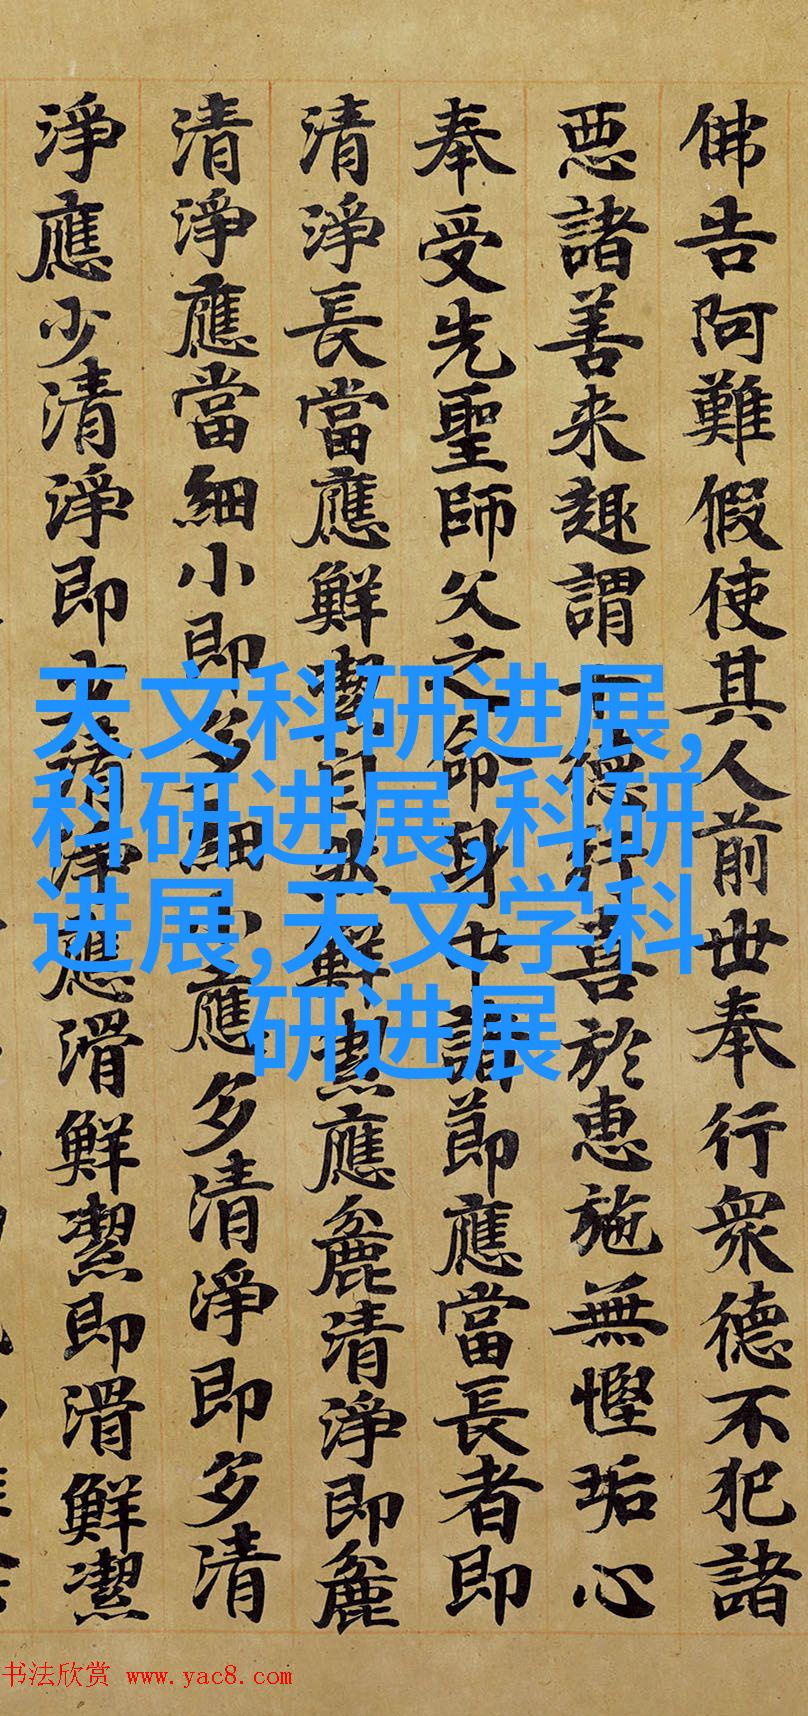 佛告阿難假使其人前世奉行衆德不犯諸
惡諸善来趣謂德好喜於惠施無慳垢心
奉受先聖師父之命身中諸節應當長者即
清淨長當應鮮潔自然鮮潔應麁清淨即麁
清淨應當細小即多細小應多清淨即多清
淨應少清淨即少清淨應滑鮮潔即滑鮮潔
天文科研进展,
科研进展,科研
进展,天文学科
研进展
书法欣赏 www.yac8.com